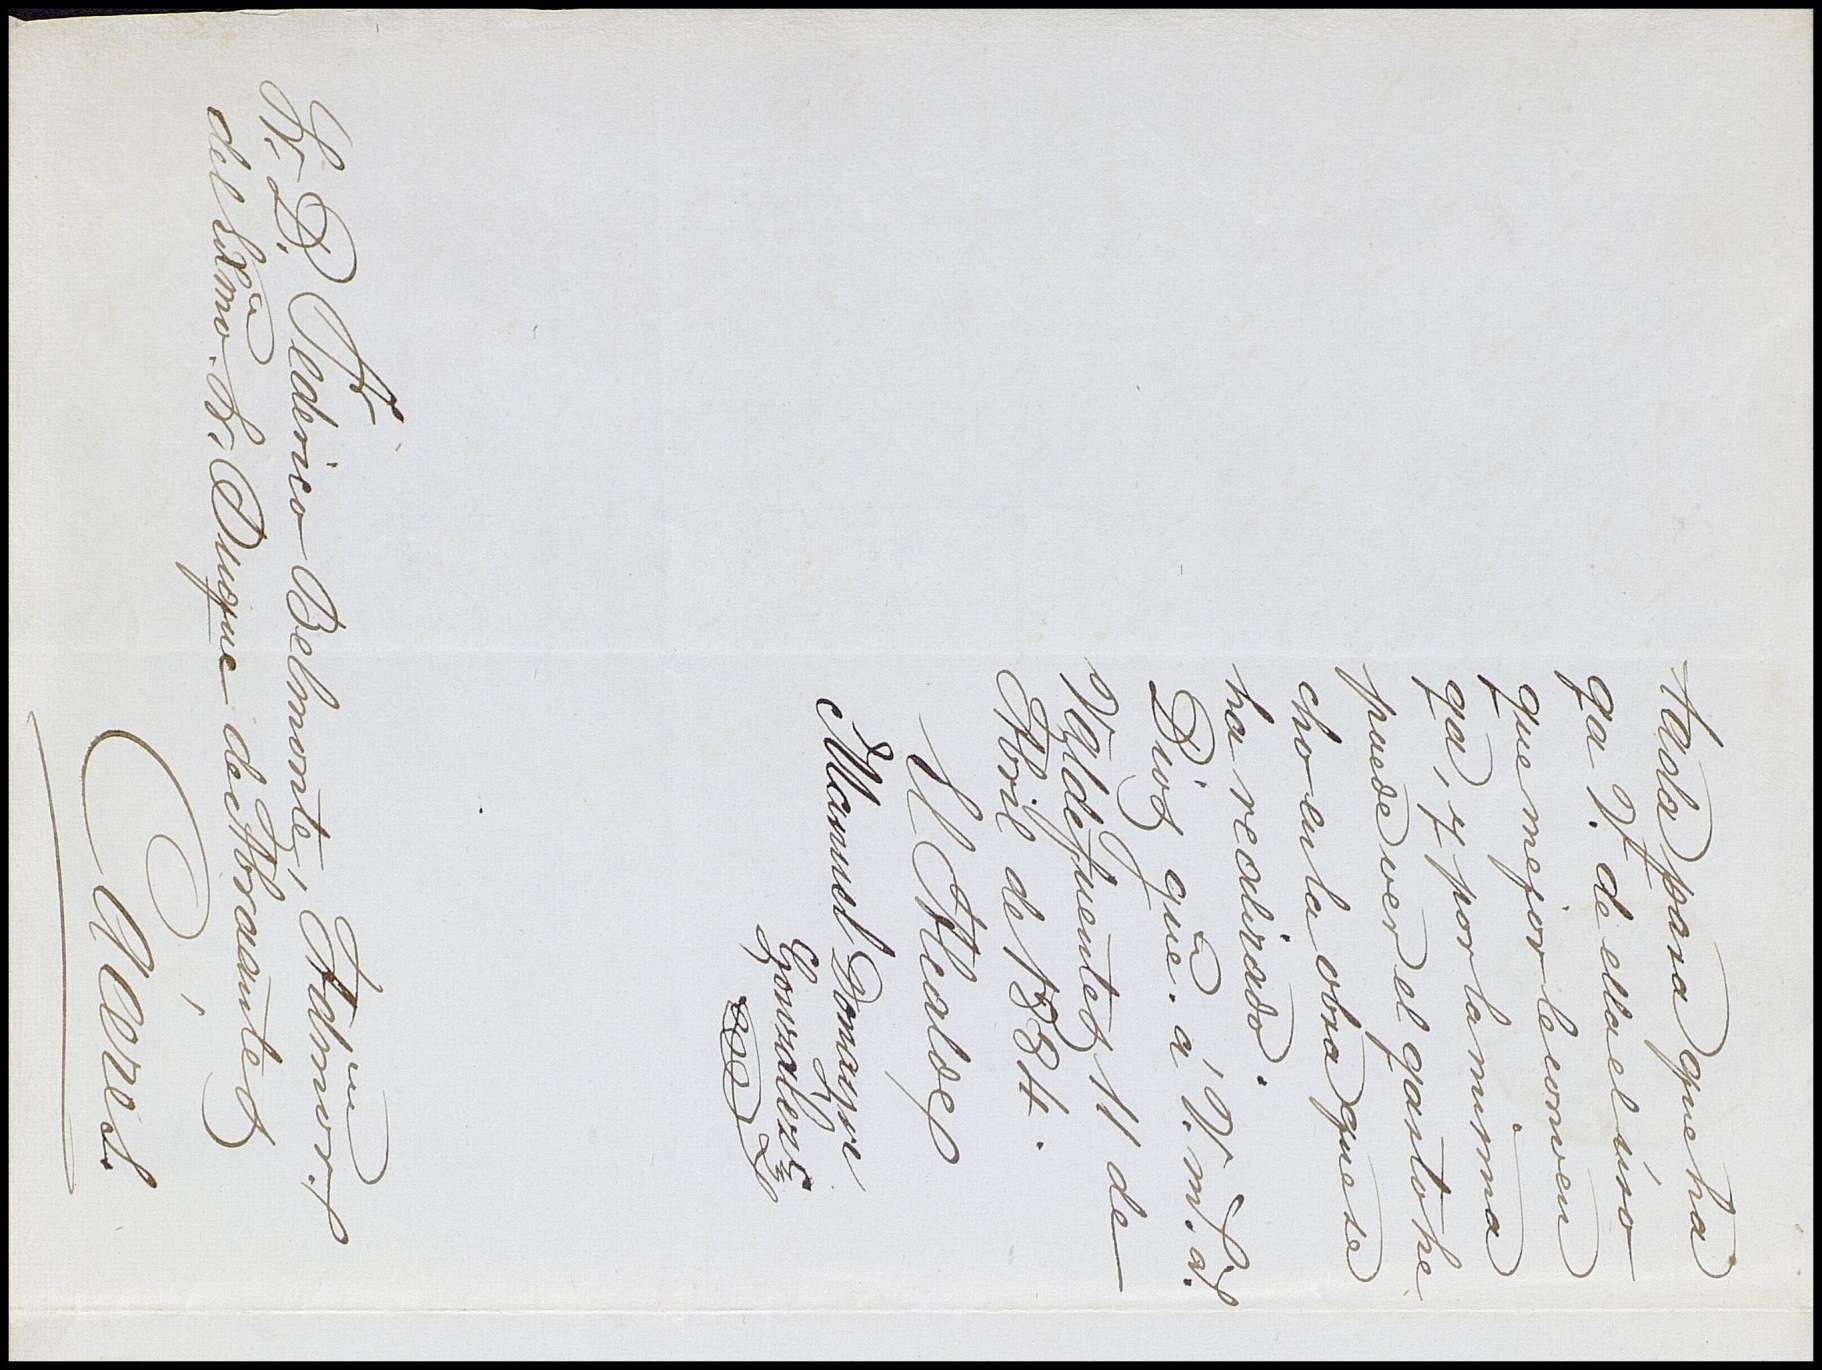 tada para que ha
ga V. de ella el úso
que mejor le conven
ga, y por la misma
puede ver el gasto he
cho en la obra que se
ha realizado.
Dios gue. a V. m. a.s
Valdefuentes 11 de
Abril de 1884.
El Alcalde
Manuel
Gonzalez
Sr. D. Federico Belmonte, Admor.
del Exmo. Sr. Duque de Abrantes
Cáceres.